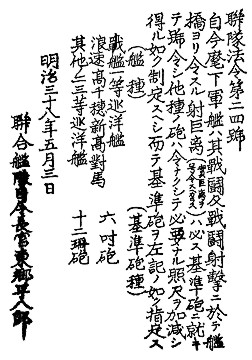 聯隊法令第二四號
自今麾下軍艦ハ其戰鬪及戰鬪射擊ニ於テ艦
橋ヨリ令スル射距離ハ必ス基準砲ニ就キ
テ號令シ他種ノ砲ハ令ナクシテ必要ナル照尺ヲ加減シ
得ル如ク制定スヘシ而テ基準砲ヲ左記ノ如ク指定ス
(艦種) (基準砲種)
戰艦一等巡洋艦
浪速高千穗新高對馬 六吋砲
其他ノ三等巡洋艦 十二珊砲
明治三十八年五月三日
聯合艦隊司令長官東鄕平八郎